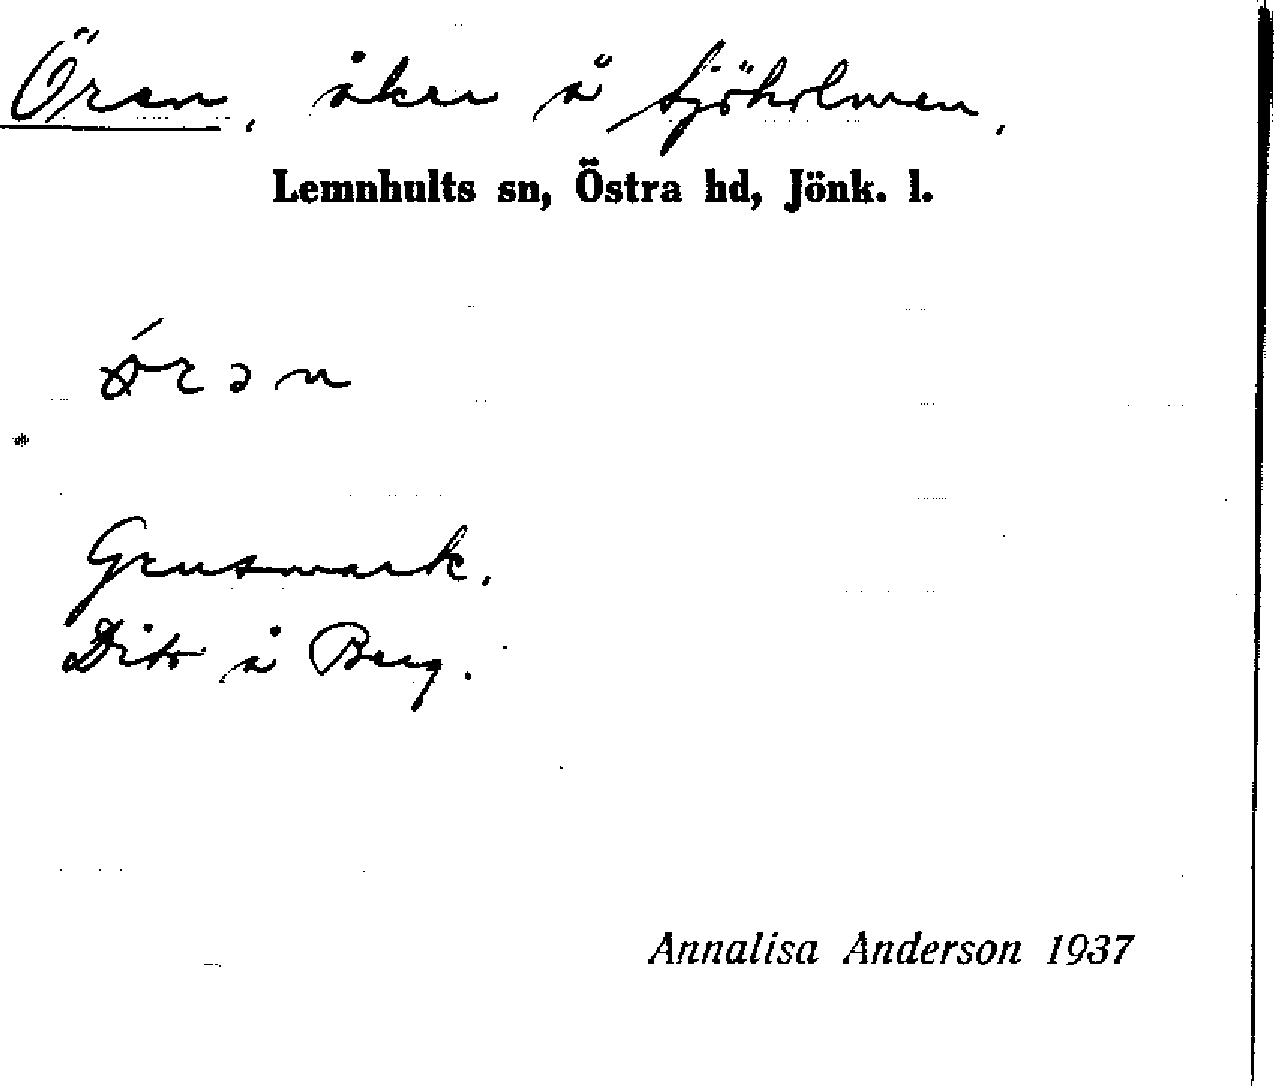 Ören, åker å Sjöholmen.
Lemnhults sn, Östra hd, Jönk. l.
Grusmark.
Dito å Berg.
Annalisa Anderson 1937